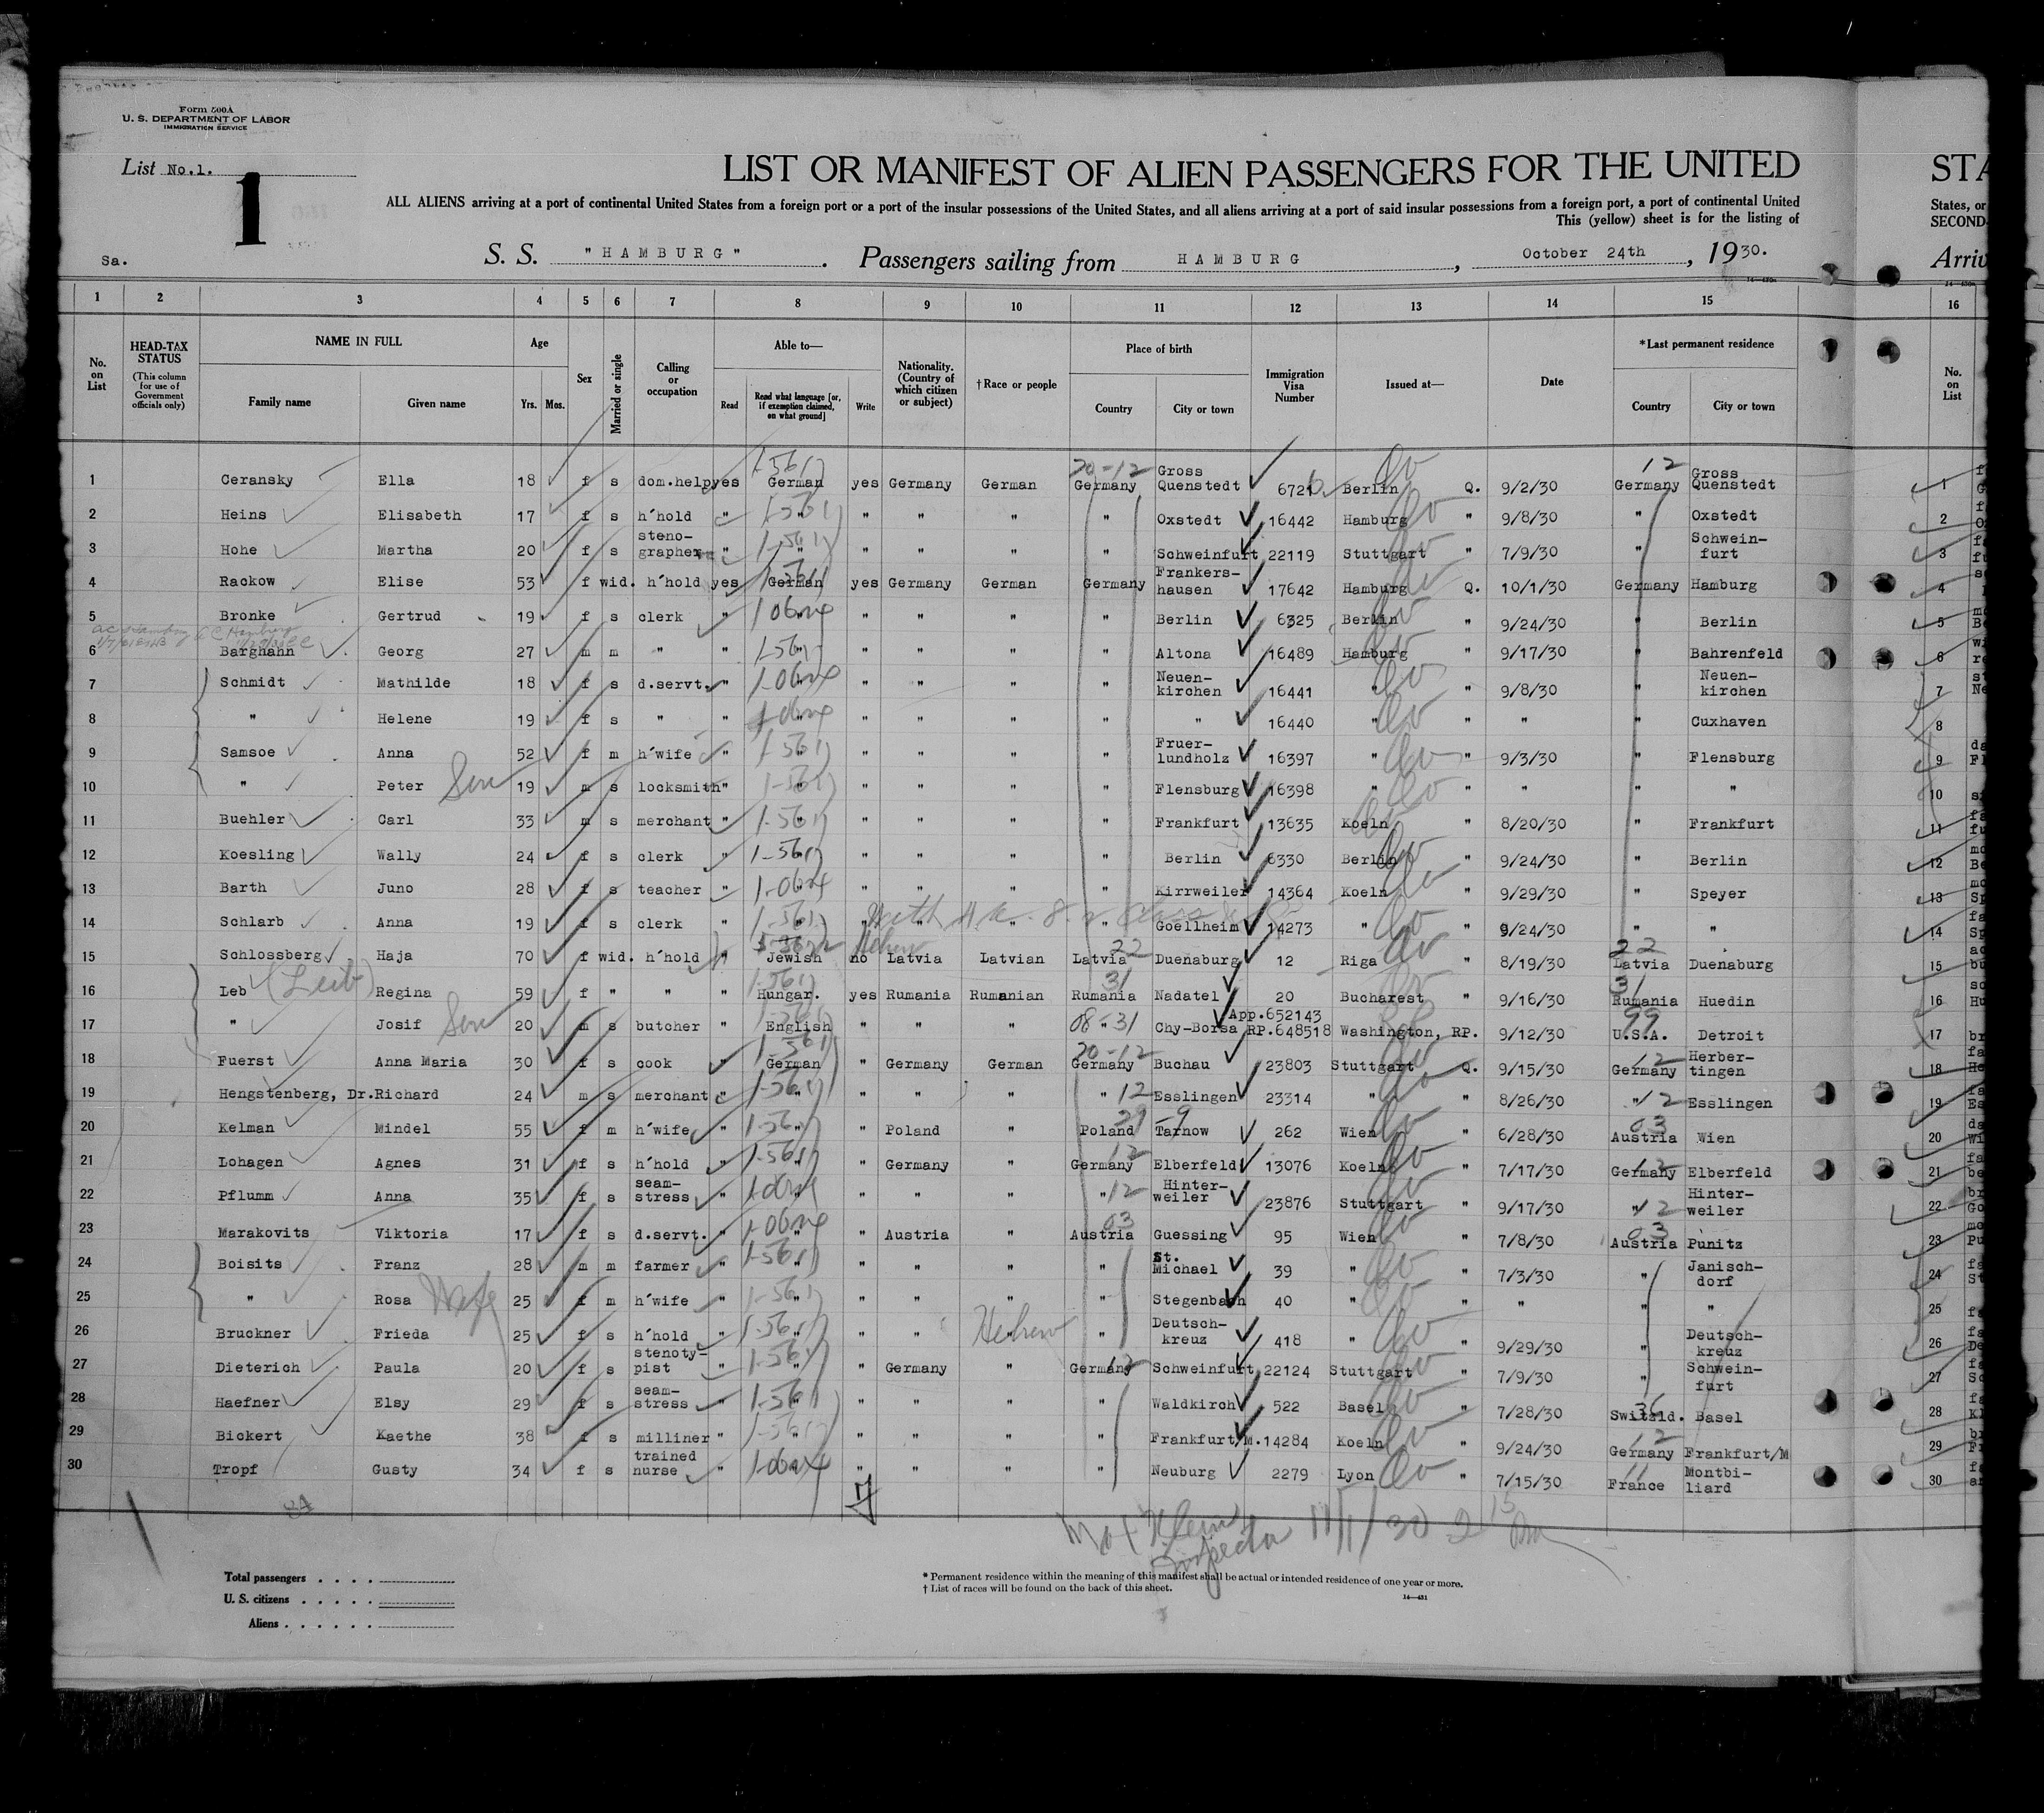 Form 500A
U. S. DEPARTMENT OF LABOR
IMMIGRATION SERVICE
List No.1.
1
LIST OR MANIFEST OF ALIEN PASSENGERS FOR THE UNITED
STA
ALL ALIENS arriving at a port of continental United States from a foreign port or a port of the insular possessions of the United States, and all aliens arriving at a port of said insular possessions from a foreign port, a port of continental United
States, or
This (yellow) sheet is for the listing of
SECOND-
Sa.
S. S. "HAMBURG". Passengers sailing from HAMBURG, October 24th, 1930.
Arriv
1 2 3 4 5 6 7 8 9 10 11 12 13 14 15 16
No. on List
HEAD-TAX STATUS (This column for use of Government officials only)
NAME IN FULL Family name Given name
Age Yrs. Mos.
Sex
Married or single
Calling or occupation
Able to— Read Read what language [or, if exemption claimed, on what ground] Write
Nationality. (Country of which citizen or subject)
† Race or people
Place of birth Country City or town
Immigration Visa Number
Issued at—
Date
*Last permanent residence Country City or town
No. on List
1 Ceransky Ella 18 f s dom.help yes German yes Germany German 20-12 Germany Gross Quenstedt 6721 Berlin Q. 9/2/30 12 Germany Gross Quenstedt 1
2 Heins Elisabeth 17 f s h'hold " " " " " " Oxstedt 16442 Hamburg " 9/8/30 " Oxstedt 2
3 Hohe Martha 20 f s steno-grapher " " " " " " Schweinfurt 22119 Stuttgart " 7/9/30 " Schwein-furt 3
4 Rackow Elise 53 f wid. h'hold yes German yes Germany German Germany Frankers-hausen 17642 Hamburg Q. 10/1/30 Germany Hamburg 4
5 Bronke Gertrud 19 f s clerk " " " " " " Berlin 6325 Berlin " 9/24/30 " Berlin 5
6 Bargmann Georg 27 m m " " " " " " " Altona 16489 Hamburg " 9/17/30 " Bahrenfeld 6
7 Schmidt Mathilde 18 f s d.servt. " " " " " " Neuen-kirchen 16441 " " 9/8/30 " Neuen-kirchen 7
8 " Helene 19 f s " " " " " " " " 16440 " " " " Cuxhaven 8
9 Samsoe Anna 52 f m h'wife " " " " " " Fruer-lundholz 16397 " " 9/3/30 " Flensburg 9
10 " Peter Son 19 m s locksmith " " " " " " Flensburg 16398 " " " " " 10
11 Buehler Carl 33 m s merchant " " " " " " Frankfurt 13635 Koeln " 8/20/30 " Frankfurt 11
12 Koesling Wally 24 f s clerk " " " " " " Berlin 6330 Berlin " 9/24/30 " Berlin 12
13 Barth Juno 28 f s teacher " " " " " " Kirrweiler 14364 Koeln " 9/29/30 " Speyer 13
14 Schlarb Anna 19 f s clerk " " " " " " Goellheim 14273 " " 9/24/30 " " 14
15 Schlossberg Haja 70 f wid. h'hold " Jewish no Latvia Hebrew Latvian 22 Latvia Duenaburg 12 Riga " 8/19/30 22 Latvia Duenaburg 15
16 Leb (Leib) Regina 59 f " " " Hungar. yes Rumania Rumanian 31 Rumania Nadatel 20 Bucharest " 9/16/30 31 Rumania Huedin 16
17 " Josif Son 20 m s butcher " English " " " 08-31 " Chy-Borsa App.652143 RP.648518 Washington, RP. 9/12/30 99 U.S.A. Detroit 17
18 Fuerst Anna Maria 30 f s cook " German " Germany German 20-12 Germany Buchau 23803 Stuttgart Q. 9/15/30 12 Germany Herber-tingen 18
19 Hengstenberg, Dr. Richard 24 m s merchant " " " " " " 12 Esslingen 23314 " " 8/26/30 " 12 Esslingen 19
20 Kelman Mindel 55 f m h'wife " " " Poland " 29-9 Poland Tarnow 262 Wien " 6/28/30 03 Austria Wien 20
21 Lohagen Agnes 31 f s h'hold " " " Germany " 12 Germany Elberfeld 13076 Koeln " 7/17/30 12 Germany Elberfeld 21
22 Pflumm Anna 35 f s seam-stress " " " " " " 12 Hinter-weiler 23876 Stuttgart " 9/17/30 " 12 Hinter-weiler 22
23 Marakovits Viktoria 17 f s d.servt. " " " Austria " 03 Austria Guessing 95 Wien " 7/8/30 03 Austria Punitz 23
24 Boisits Franz 28 m m farmer " " " " " " St. Michael 39 " " 7/3/30 " Janisch-dorf 24
25 " Rosa Wife 25 f m h'wife " " " " " " Stegenbach 40 " " " " " 25
26 Bruckner Frieda 25 f s h'hold " " " " Hebrew " Deutsch-kreuz 418 " " 9/29/30 " Deutsch-kreuz 26
27 Dieterich Paula 20 f s stenoty-pist " " " Germany " 12 Germany Schweinfurt 22124 Stuttgart " 7/9/30 " Schwein-furt 27
28 Haefner Elsy 29 f s seam-stress " " " " " " Waldkirch 522 Basel " 7/28/30 36 Switzld. Basel 28
29 Bickert Kaethe 38 f s milliner " " " " " " Frankfurt/M. 14284 Koeln " 9/24/30 12 Germany Frankfurt/M 29
30 Tropf Gusty 34 f s trained nurse " " " " " " Neuburg 2279 Lyon " 7/15/30 11 France Montbi-liard 30
Max Klein 11/1/30 2 15 pm
Inspector
Total passengers
U. S. citizens
Aliens
* Permanent residence within the meaning of this manifest shall be actual or intended residence of one year or more.
† List of races will be found on the back of this sheet.
14—431